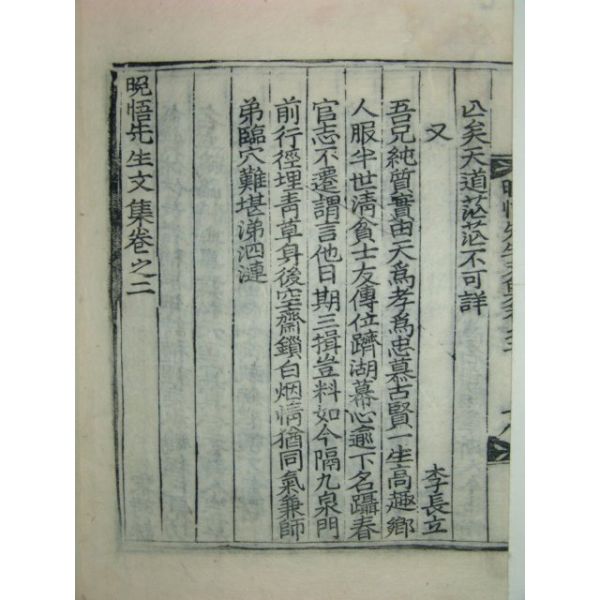 亾矣天道茫茫不可詳
又 李長立
吾兄純質實由天爲孝爲忠慕古賢一生高趣鄉
人服半世淸貧士友傳位躋湖幕心逾下名躡春
官志不遷謂言他日期三揖豈料如今隔九泉門
前行徑埋靑草身後空齋鎖白烟情猶同氣兼師
弟臨穴難堪涕泗漣
晩悟先生文集卷之二